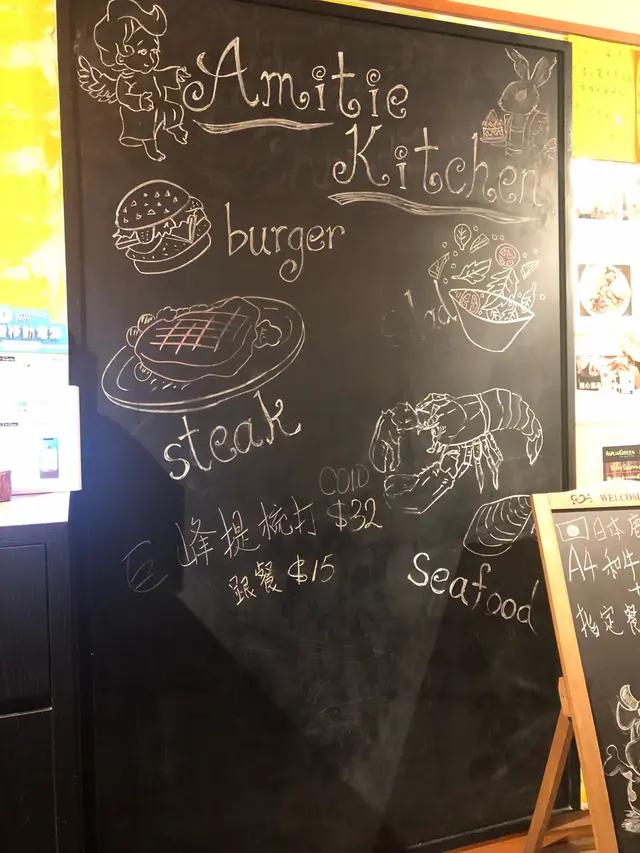 Amitie
Kitchen
burger
steak
COLD
巨峰提梳打 $32
跟餐 $15
Seafood
WELCOM
日本
A4 和牛
指定餐